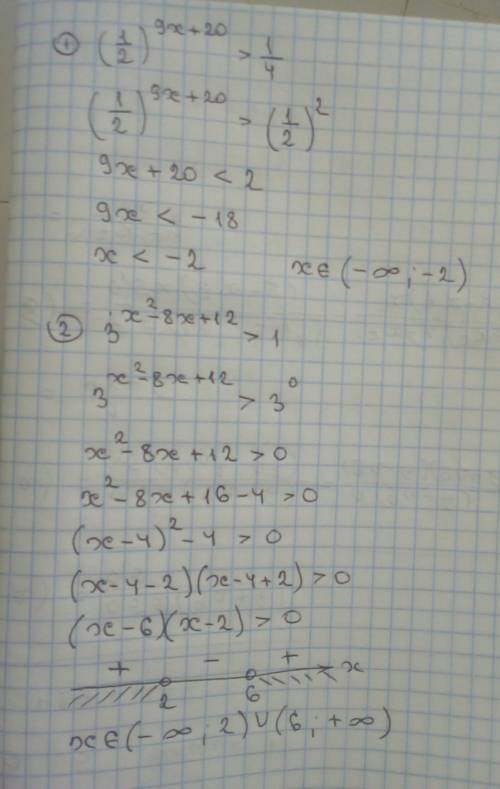 ① (1/2)^(9x+20) > 1/4
(1/2)^(9x+20) > (1/2)^2
9x + 20 < 2
9x < -18
x < -2 x∈(-∞; -2)
② 3^(x²-8x+12) > 1
3^(x²-8x+12) > 3^0
x² - 8x + 12 > 0
x² - 8x + 16 - 4 > 0
(x-4)² - 4 > 0
(x-4-2)(x-4+2) > 0
(x-6)(x-2) > 0
+ - + x
2 6
x∈(-∞; 2)∪(6; +∞)